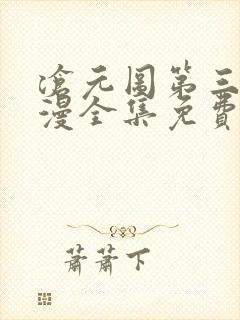 沧元图第三
漫全集免费
萧萧下